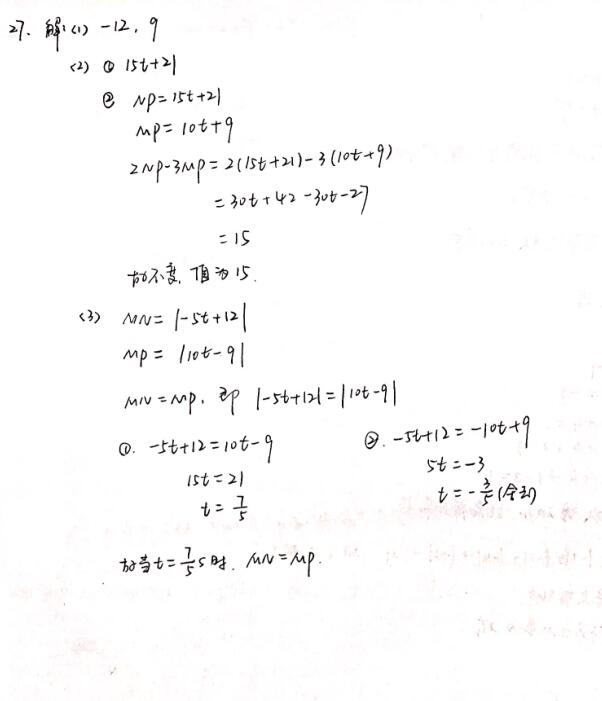 27. 解:(1) -12, 9
(2) ① 15t+21
② NP=15t+21
MP=10t+9
2NP-3MP=2(15t+21)-3(10t+9)
=30t+42-30t-27
=15
故不变, 值为15.
(3) MN=|-5t+12|
MP=|10t-9|
MN=MP, 即 |-5t+12|=|10t-9|
①. -5t+12=10t-9
15t=21
t=7/5
②. -5t+12=-10t+9
5t=-3
t=-3/5(舍去)
故当t=7/5s时, MN=MP.